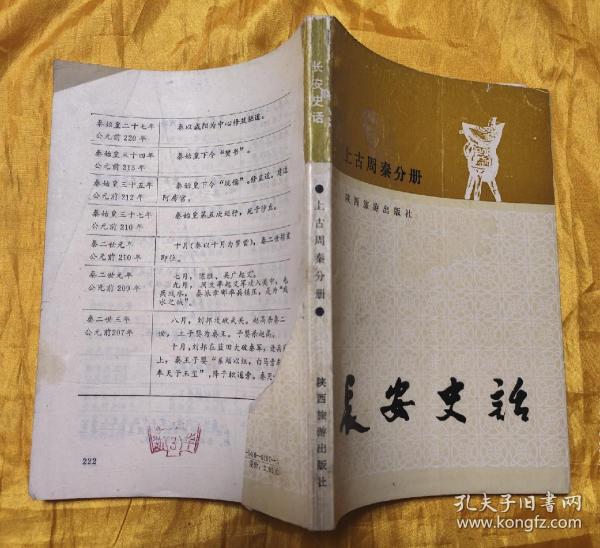 上古周秦分册
陕西旅游出版社
长安史话
长安史话
●上古周秦分册●
陕西旅游出版社
秦始皇二十七年
公元前220年
秦以咸阳为中心修筑驰道。
秦始皇三十四年
公元前213年
秦始皇下令“焚书”。
秦始皇三十五年
公元前212年
秦始皇下令“坑儒”。修直道。建造
阿房宫。
秦始皇三十七年
公元前210年
秦始皇第五次巡行，死于沙丘。
秦二世元年
公元前210年
十月（秦以十月为岁首），秦二世胡亥
即位。
秦二世元年
公元前209年
七月，陈胜、吴广起义。
秦二世三年
公元前207年
八月，刘邦攻破武关。赵高杀秦二
世，立子婴为秦王。子婴杀赵高。
十月，刘邦在蓝田大破秦军，进
上，秦王子婴“系颈以组，白马素
奉天子玉玺”，降于轵道旁。秦
222
孔夫子旧书网
www.kongfz.com